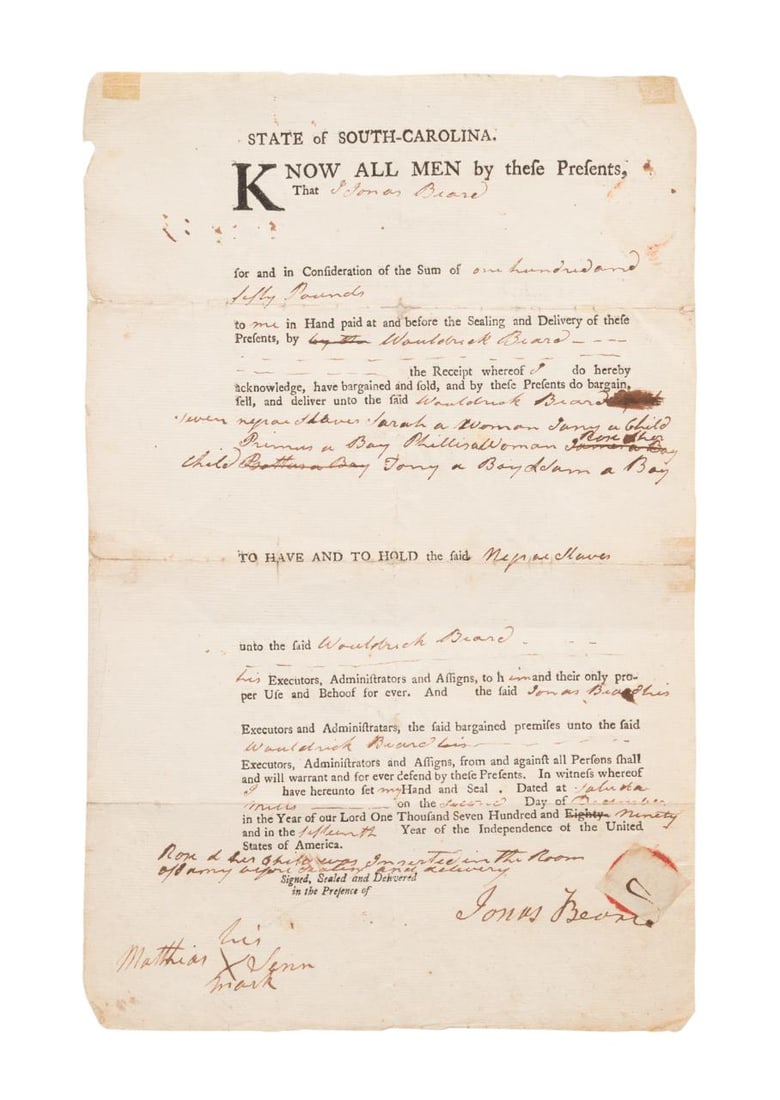 STATE of SOUTH-CAROLINA.
KNOW ALL MEN by theſe Preſents,
That I Jonas Beard
for and in Conſideration of the Sum of one hundred and
fifty Pounds
to me in Hand paid at and before the Sealing and Delivery of theſe
Preſents, by by the Wouldrick Beard
the Receipt whereof I do hereby
acknowledge, have bargained and ſold, and by theſe Preſents do bargain,
ſell, and deliver unto the ſaid Wouldrick Beard
seven negroe Slaves Sarah a Woman Jany a Child
Primus a Boy Phillis a Woman Rose & her
Child Tony a Boy Adam a Boy
TO HAVE AND TO HOLD the ſaid Negroe Slaves
unto the ſaid Wouldrick Beard
his Executors, Adminiſtrators and Aſſigns, to him and their only pro-
per Uſe and Behoof for ever. And the ſaid Jonas Beard his
Executors and Adminiſtratars, the ſaid bargained premiſes unto the ſaid
Wouldrick Beard his
Executors, Adminiſtrators and Aſſigns, from and againſt all Perſons ſhall
and will warrant and for ever defend by theſe Preſents. In witneſs whereof
I have hereunto ſet my Hand and Seal. Dated at Saluda
Mills on the Second Day of December
in the Year of our Lord One Thouſand Seven Hundred and Eighty- Ninety
and in the fifteenth Year of the Independence of the United
States of America.
Rose & her Child was Inserted in the Room
before and delivery
Signed, Sealed and Delivered
in the Preſence of
Jonas Beard
his
Mathias X Senn
mark